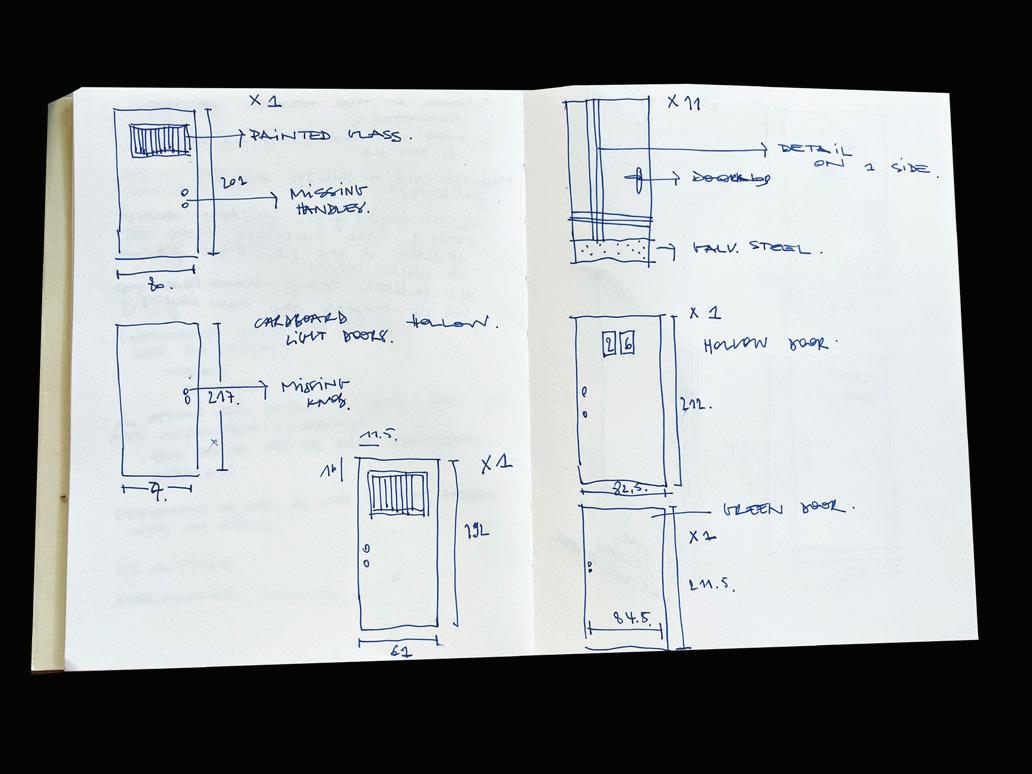 X 1
PAINTED GLASS.
202
MISSING
HANDLES.
80.
CARDBOARD HOLLOW.
LIGHT DOORS.
217.
MISSING
KNOB.
x
11.5.
16
X 1
192
61
X 11
DETAIL
ON 1 SIDE.
GALV. STEEL.
X 1
26
HOLLOW DOOR.
212.
82.5.
GREEN DOOR.
X 1
211.5.
84.5.